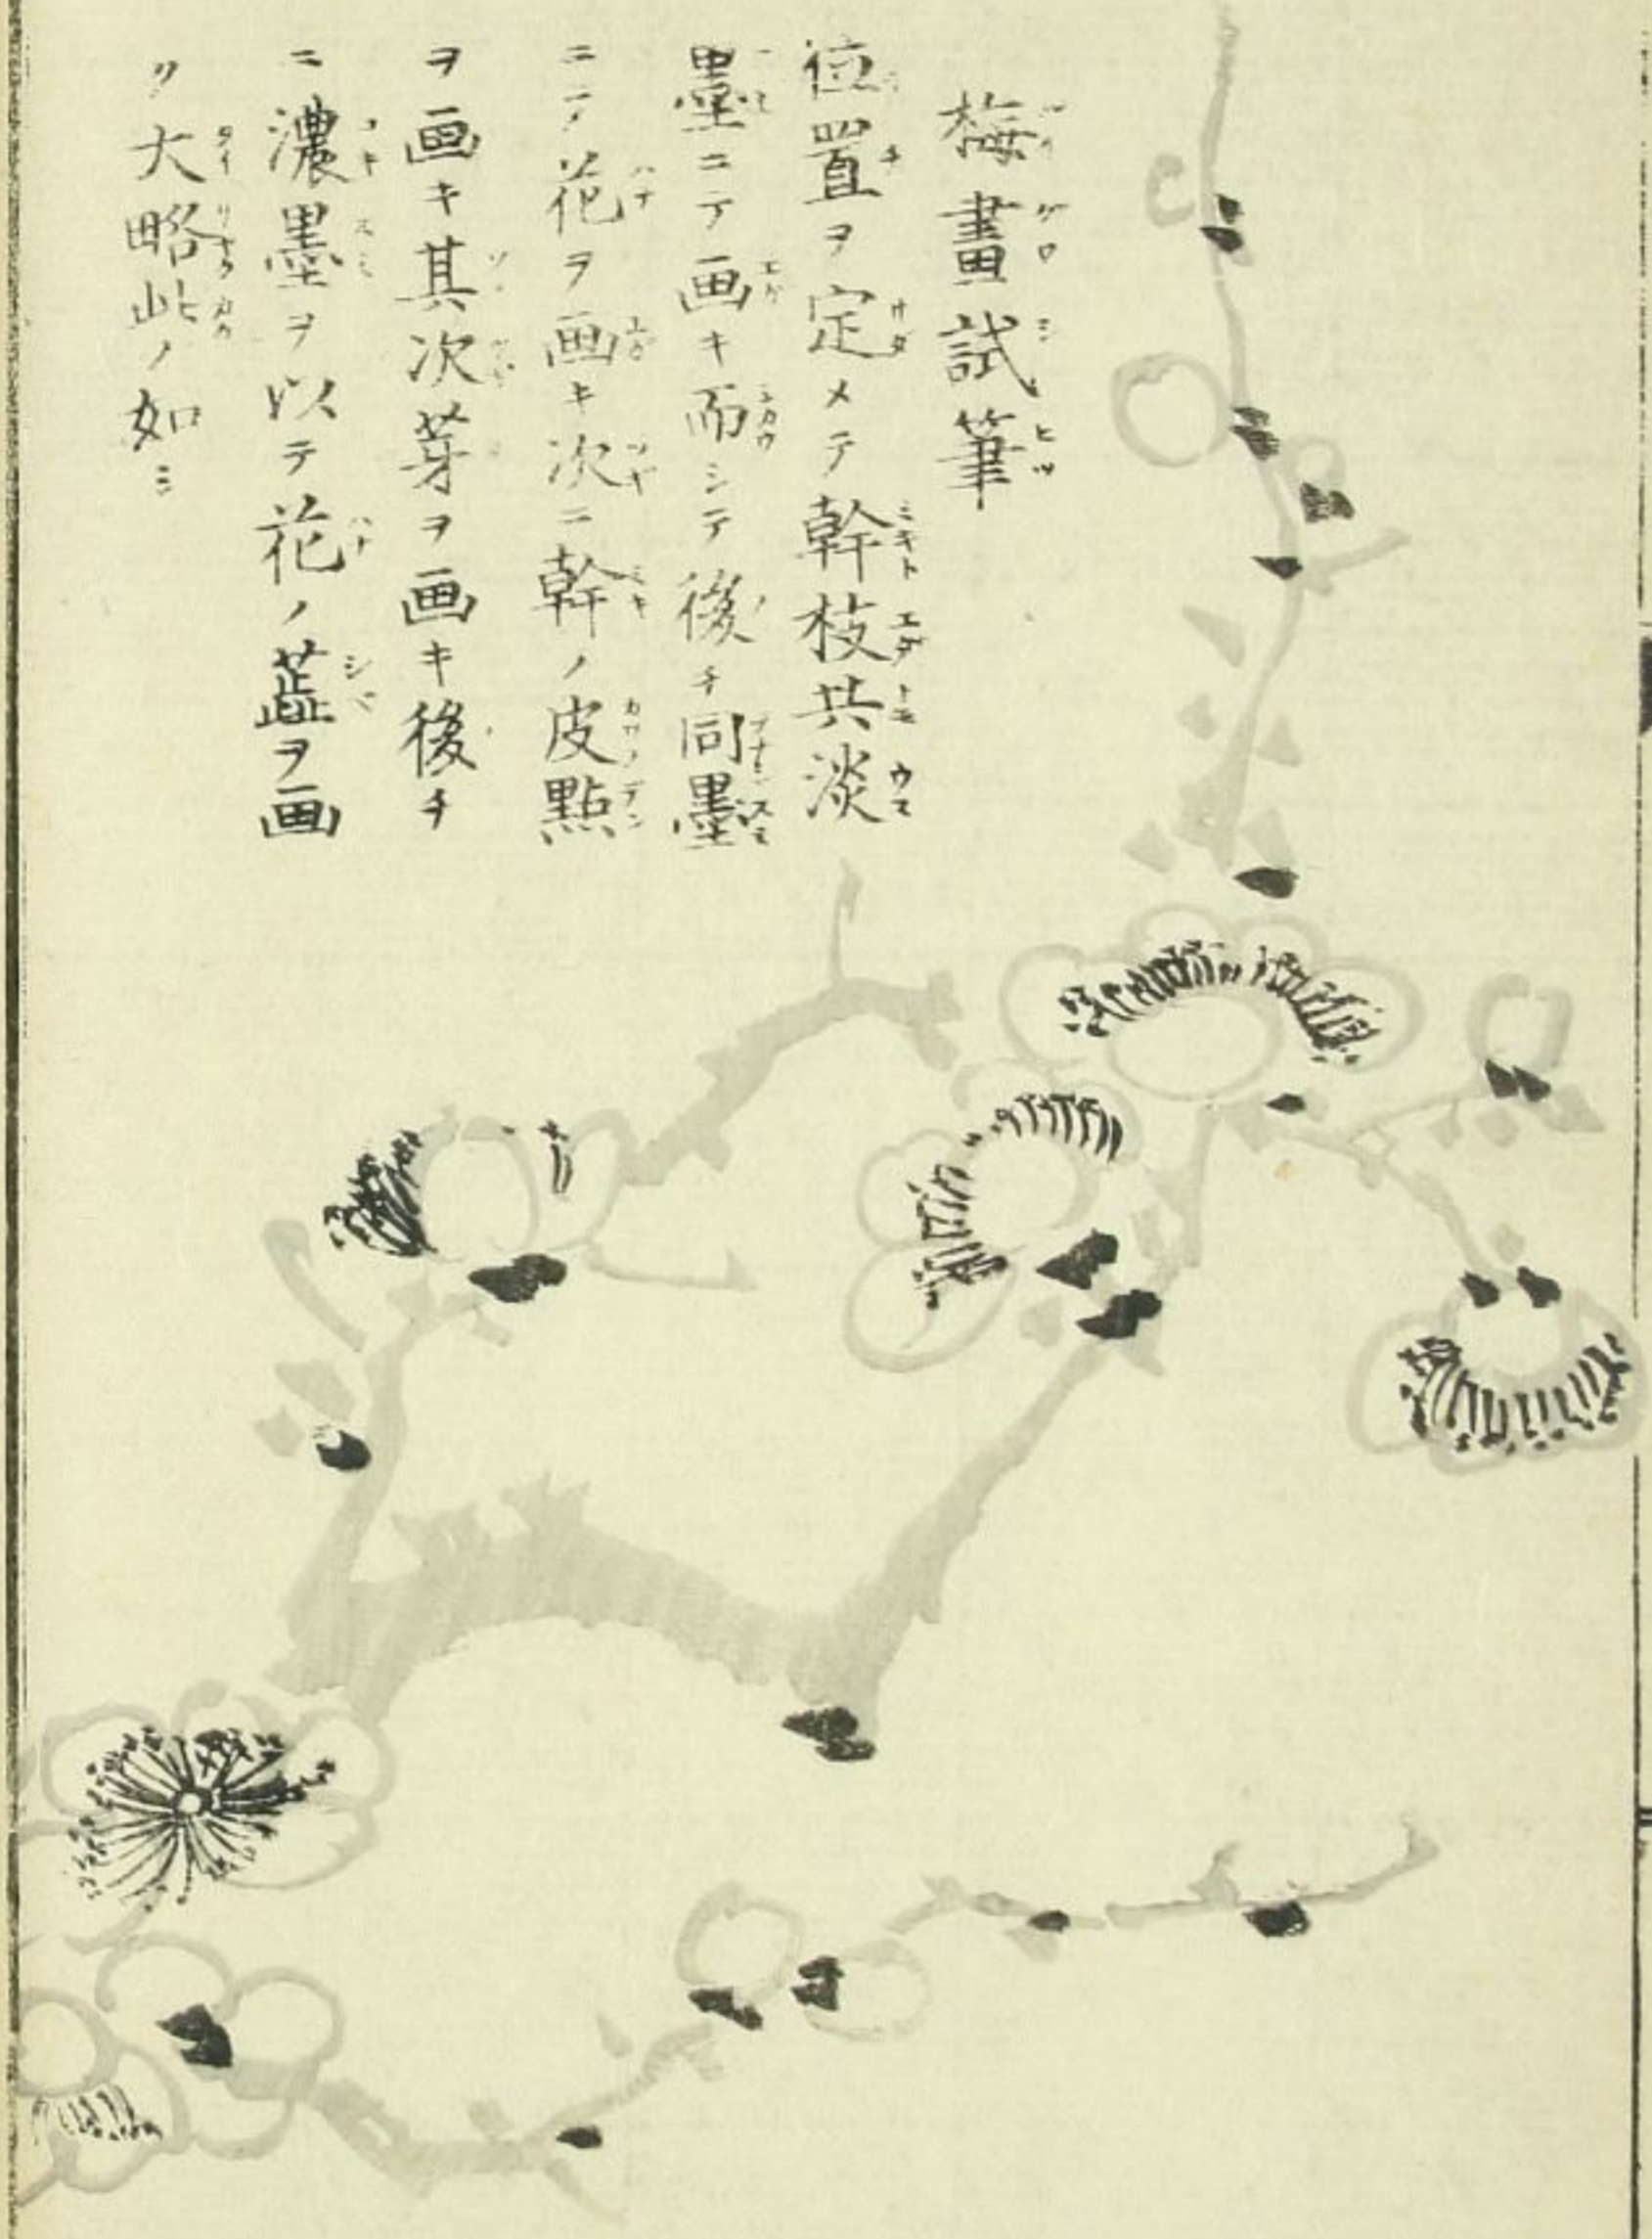 梅畫試筆
位置ヲ定メテ幹枝共淡
墨ニテ画キ而シテ後チ同墨
ニテ花ヲ画キ次ニ幹ノ皮點
ヲ画キ其次芽ヲ画キ後チ
ニ濃墨ヲ以テ花ノ蕋ヲ画
ク大略此ノ如シ